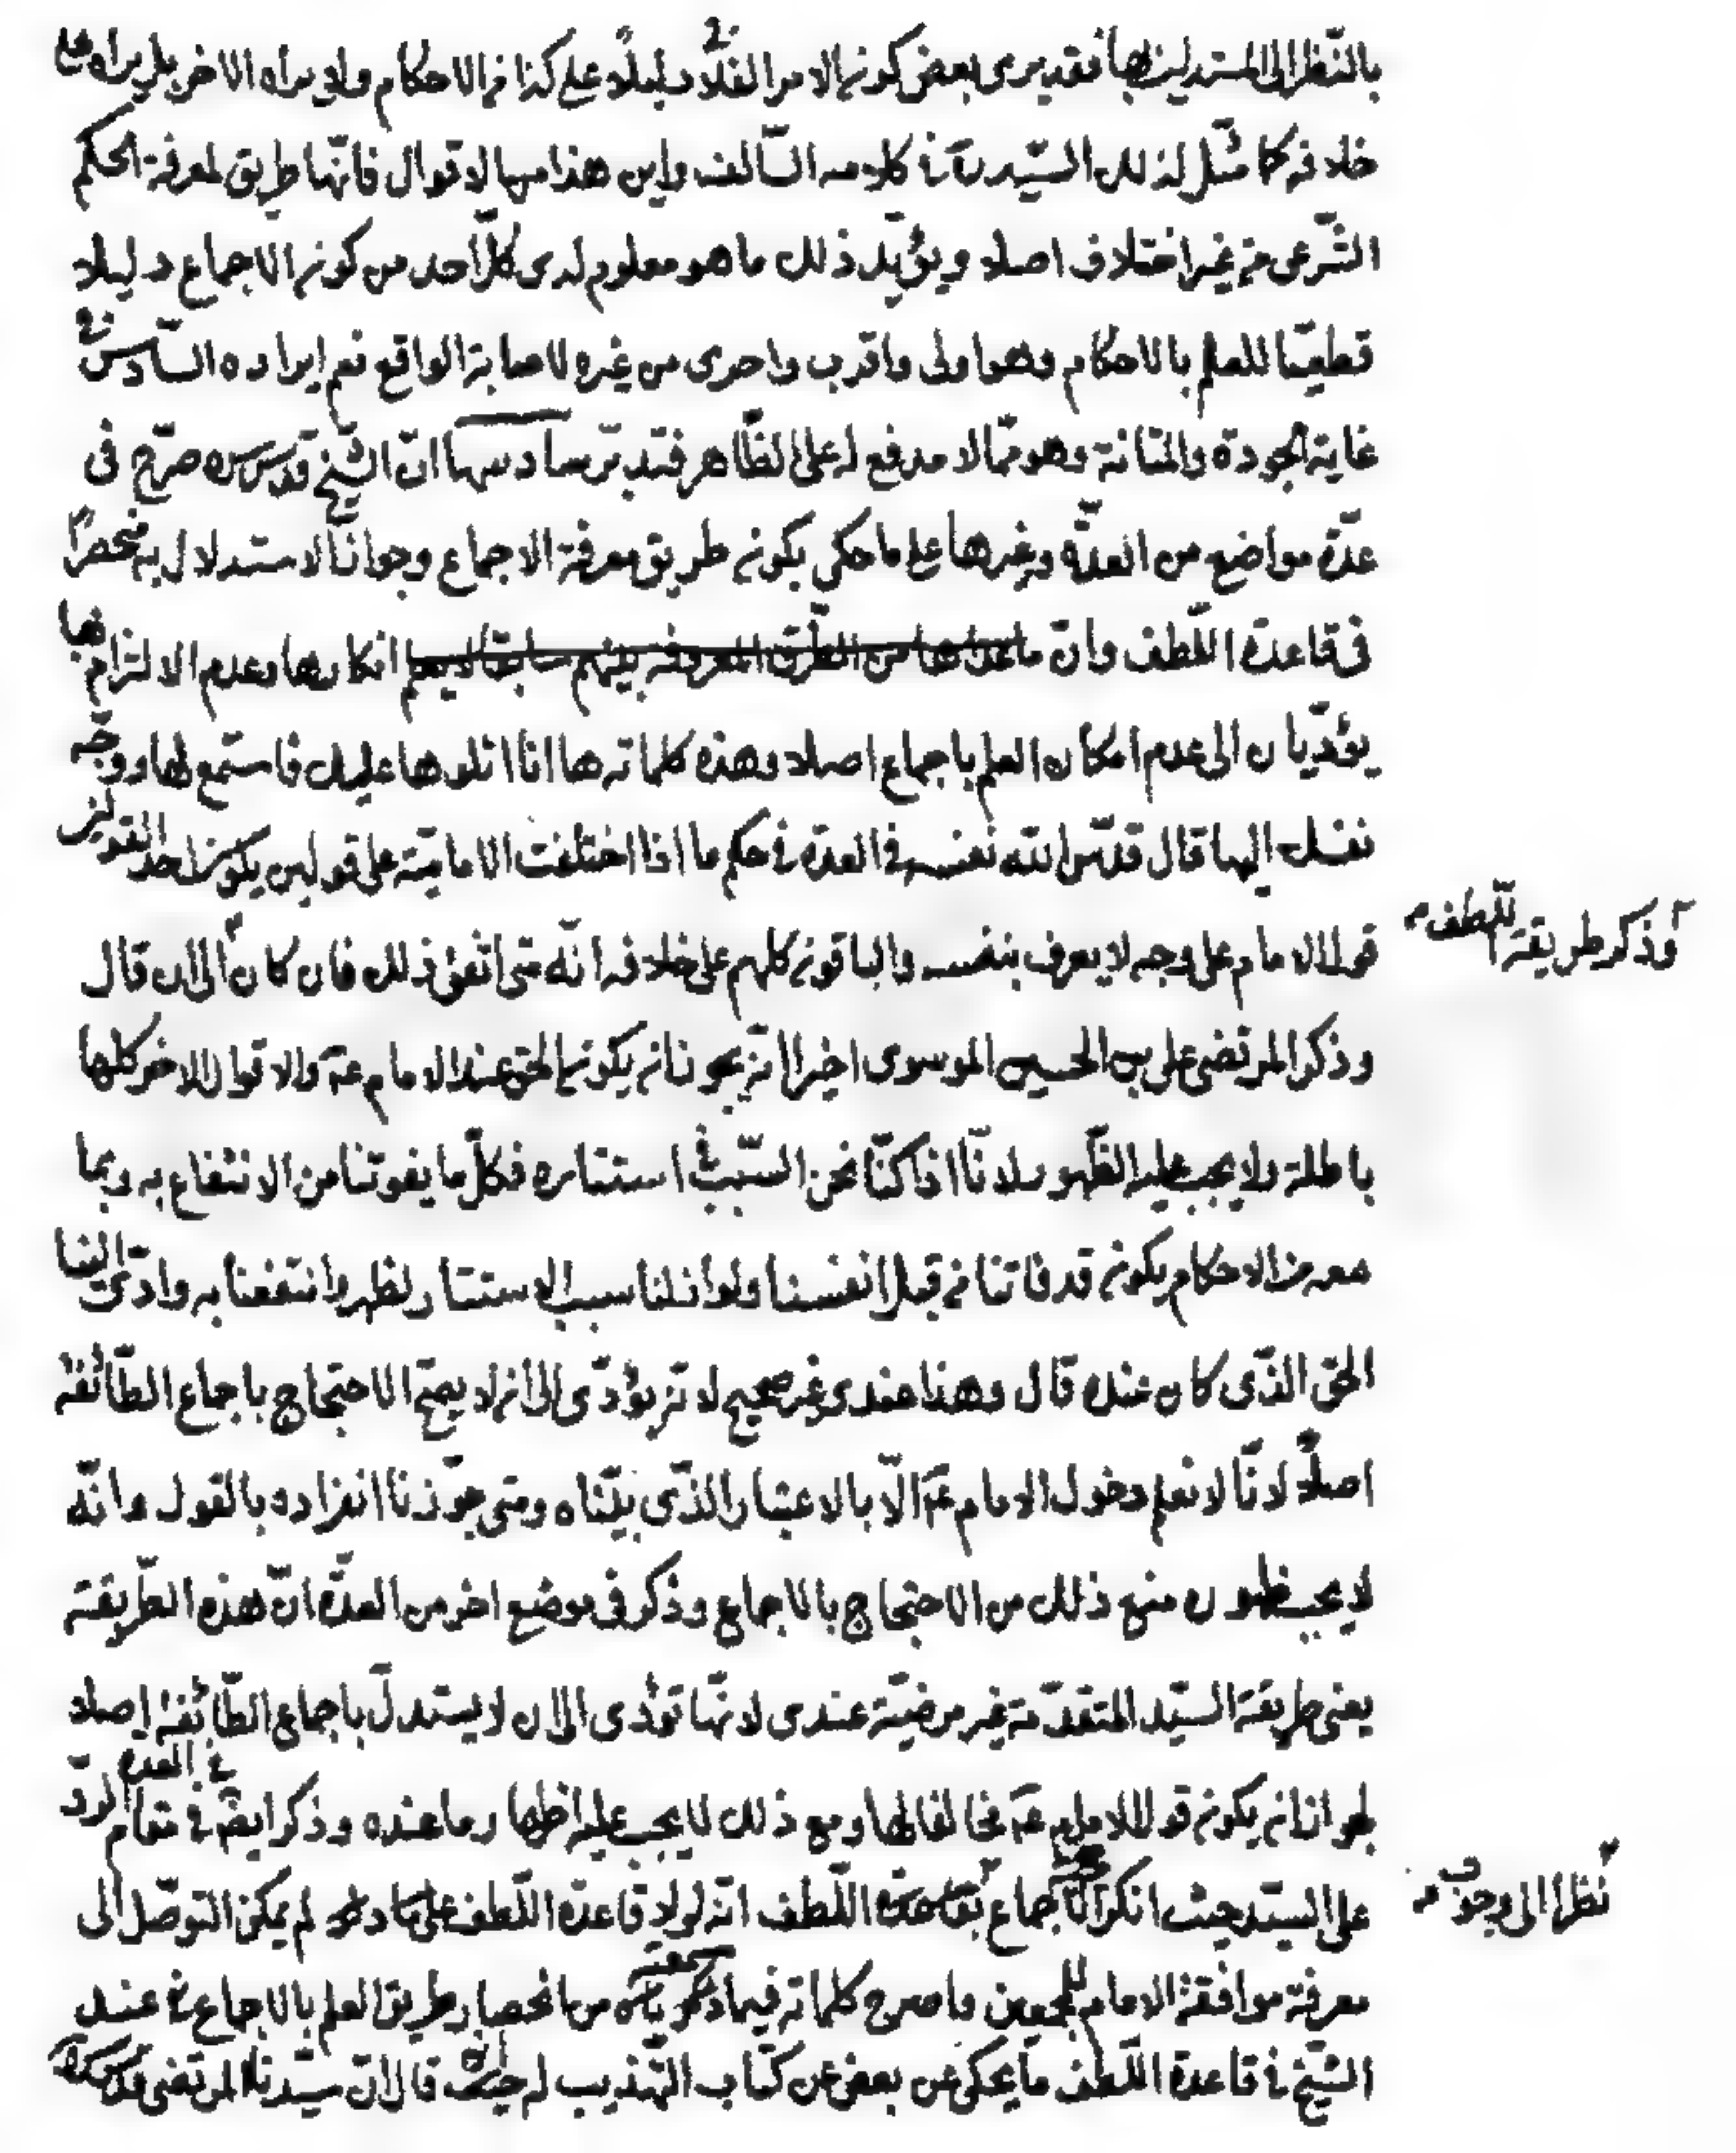 بالنّظر الى المستدلين بها فقد يرى بعض كون الامر الفلانى دليلاً على كذا من الاحكام ولا يراه الاخر بل يراه على
خلافه كما مثّل لذلك السّيد ره فى كلامه السّالف واين هذا من الاقوال فانّها طريق لمعرفة الحكم
الشّرعى من غير اختلاف اصلا ويؤيّد ذلك ما هو معلوم لدى كلّ احد من كون الاجماع دليلا
قطعيّا للعلم بالاحكام وهو اولى واقرب واحرى من غيره لاصابة الواقع نعم ايراده السّادس فى
غاية الجودة والمتانة وهو ممّا لا مدفع له على الظّاهر فتدبّر سادسها انّ الشّيخ قدس سره صرّح فى
عدّة مواضع من العدّة وغيرها على ما حكى بكون طريق معرفة الاجماع وجواز الاستدلال به منحصرًا
فى قاعدة اللّطف وانّ ما عداها من الطّرق المعروفة بينهم سابقا لا يعلم انكارها وعدم الالتزام بها
يؤدّيان الى عدم امكان العلم باجماع اصلا وهذه كلماته ها انا اتلوها عليك فاستمع لها ووجّه
نفسك اليها قال قدّس الله نفسه فى العدة فى حكم ما اذا اختلفت الاماميّة على قولين يكون احد القولين
قول الامام على وجه لا يعرف بنفسه والباقون كلهم على خلافه انّه متى اتفق ذلك فان كان الى ان قال
وذكر طريقة اللّطف
وذكر المرتضى على بن الحسين الموسوى اخيرا انّه يجوز ان يكون الحق عند الامام عه والاقوال الاخر كلها
باطلة ولا يجب عليه الظّهور لانّا اذا كنّا نحن السّبب فى استتاره فكلّ ما يفوتنا من الانتفاع به وبما
معه من الاحكام يكون قد فاتنا من قبل انفسنا ولو ازلنا سبب الاستتار لظهر وانتفعنا به وادّى الينا
الحق الذّى كان عنده قال وهذا عندى غير صحيح لانّه يؤدّى الى انه لا يصحّ الاحتجاج باجماع الطّائفة
اصلاً لانّا لا نعلم دخول الامام عه الّا بالاعتبار الذّى بيّنّاه ومتى جوّزنا انفراده بالقول وانّه
لا يجب ظهوره منع ذلك من الاحتجاج بالاجماع وذكر فى موضع اخر من العدّة انّ هذه الطّريقة
يعنى طريقة السّيّد المتقدّمة غير مرضيّة عندى لانّها تؤدى الى ان لا يستدلّ باجماع الطّائفة اصلا
لجواز ان يكون قول الامام عه مخالفا لها ومع ذلك لا يجب عليه اظهار ما عنده وذكر ايضا فى مقام الردّ
فى العدة
على السيّد حيث انكر الاجماع اللّطف انّه لو لا قاعدة اللّطف لم يمكن التوصّل الى
نظرا الى وجوب
معرفة موافقة الامام للمجمعين واصرح كلماته فيما من انحصار طريق العلم بالاجماع عند
الشّيخ فى قاعدة اللّطف ما يحكى عن بعض عن كتاب التّهذيب له حيث قال انّ سيّدنا المرتضى